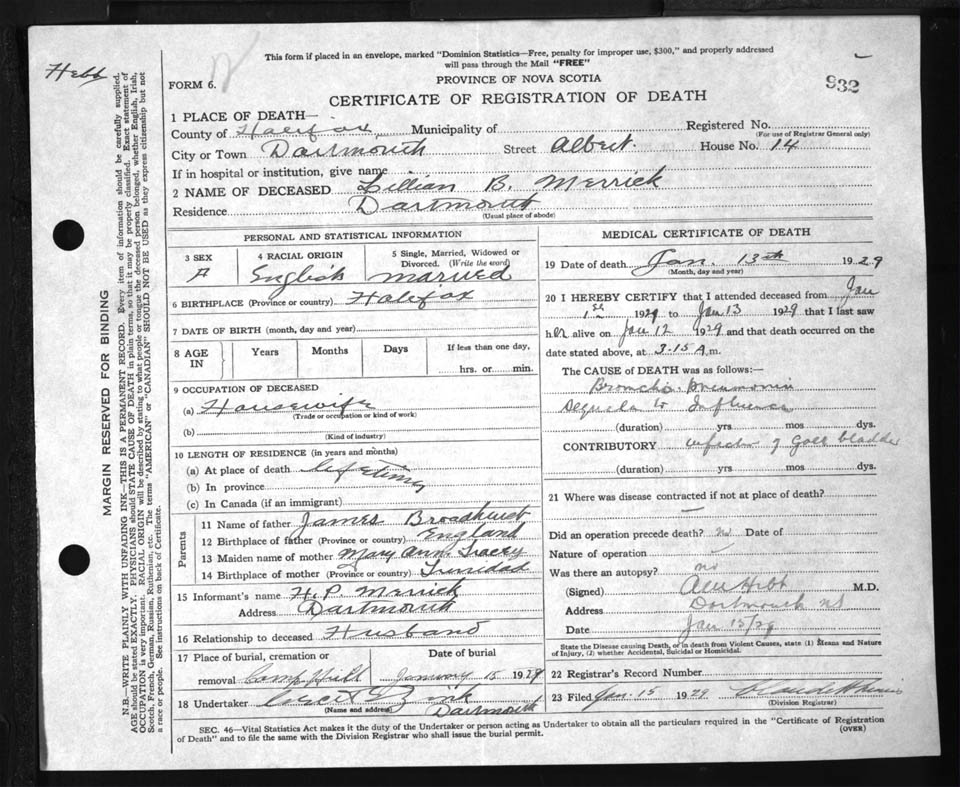 This form if placed in an envelope, marked "Dominion Statistics—Free, penalty for improper use, $300," and properly addressed
will pass through the Mail "FREE"
Hebb
FORM 6.
PROVINCE OF NOVA SCOTIA
932
CERTIFICATE OF REGISTRATION OF DEATH
1 PLACE OF DEATH—
County of Halifax Municipality of Registered No.
(For use of Registrar General only)
City or Town Dartmouth Street Albert. House No. 14
If in hospital or institution, give name
2 NAME OF DECEASED Lillian B. Merrick
Residence Dartmouth
(Usual place of abode)
PERSONAL AND STATISTICAL INFORMATION
3 SEX 4 RACIAL ORIGIN 5 Single, Married, Widowed or
Divorced. (Write the word)
English married
6 BIRTHPLACE (Province or country) Halifax
7 DATE OF BIRTH (month, day and year)
8 AGE IN Years Months Days If less than one day,
hrs. or min.
9 OCCUPATION OF DECEASED
(a) Housewife
(Trade or occupation or kind of work)
(b)
(Kind of industry)
10 LENGTH OF RESIDENCE (in years and months)
(a) At place of death lifetime
(b) In province
(c) In Canada (if an immigrant)
Parents
11 Name of father James Broadhurst
12 Birthplace of father (Province or country) England
13 Maiden name of mother Mary Ann Tracey
14 Birthplace of mother (Province or country) Trinidad
15 Informant's name H. P. Merrick
Address Dartmouth
16 Relationship to deceased Husband
17 Place of burial, cremation or Date of burial
removal Camp Hill January 15 1929
18 Undertaker Dartmouth
(Name and address)
MEDICAL CERTIFICATE OF DEATH
19 Date of death Jan. 13th 1929
(Month, day and year)
20 I HEREBY CERTIFY that I attended deceased from Jan
1st 1929 to Jan 13 1929 that I last saw
her alive on Jan 12 1929 and that death occurred on
date stated above, at 3.15 A.m.
The CAUSE of DEATH was as follows:—
Broncho Pneumonia
Sequela to Influenza
(duration) yrs mos dys.
CONTRIBUTORY infection of Gall bladder
(duration) yrs mos dys.
21 Where was disease contracted if not at place of death?
—
Did an operation precede death? No Date of
Nature of operation
Was there an autopsy? no
(Signed) Hebb M.D.
Address Dartmouth NS
Date Jan 15/29
State the Disease causing Death, or in death from Violent Causes, state (1) Means and Nature
of Injury, (2) whether Accidental, Suicidal or Homicidal.
22 Registrar's Record Number
23 Filed Jan. 15 1929
(Division Registrar)
SEC. 46—Vital Statistics Act makes it the duty of the Undertaker or person acting as Undertaker to obtain all the particulars required in the "Certificate of Registration
of Death" and to file the same with the Division Registrar who shall issue the burial permit.
(OVER)
MARGIN RESERVED FOR BINDING
N.B.—WRITE PLAINLY WITH UNFADING INK—THIS IS A PERMANENT RECORD. Every item of information should be carefully supplied.
AGE should be stated EXACTLY. PHYSICIANS should STATE CAUSE OF DEATH in plain terms, so that it may be properly classified. Exact statement of
OCCUPATION is very important. RACIAL ORIGIN will be described by stating to what people or tongue the deceased person belonged, whether English, Irish,
Scotch, French, German, Russian, Ruthenian, etc. The terms "AMERICAN" or "CANADIAN" SHOULD NOT BE USED as they express citizenship but not
a race or people. See instructions on back of Certificate.